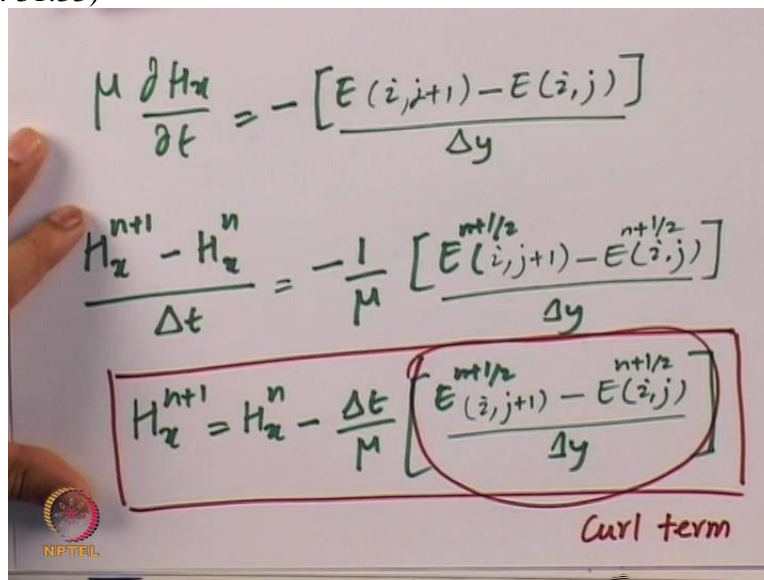 μ ∂Hx/∂t = - [E(i,j+1) - E(i,j)]/Δy
(Hx^{n+1} - Hx^n)/Δt = -1/μ [E^{n+1/2}(i,j+1) - E^{n+1/2}(i,j)]/Δy
Hx^{n+1} = Hx^n - Δt/μ [(E^{n+1/2}(i,j+1) - E^{n+1/2}(i,j))/Δy]
Curl term
NPTEL